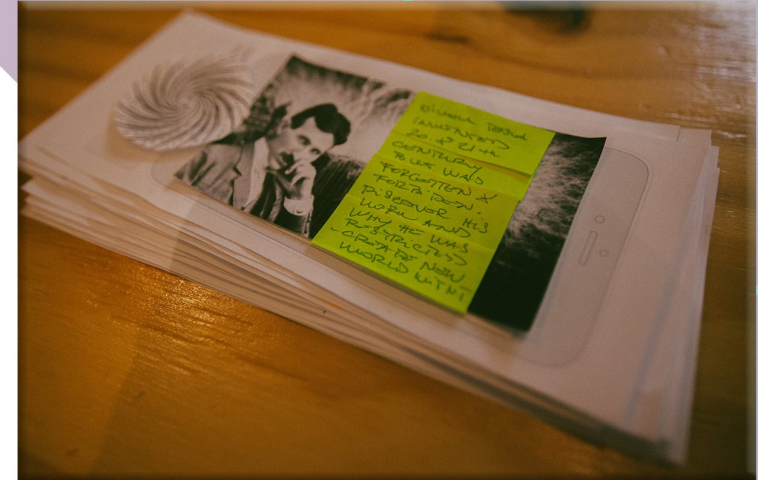 Nikola Tesla
INVENTED
20. & 21th
CENTURY
BUT WAS
FORGOTTEN &
DISCOVER HIS
WORK AND
WHY HE WAS
RESTRICTED
-CREATE NEW
WORLD WITH